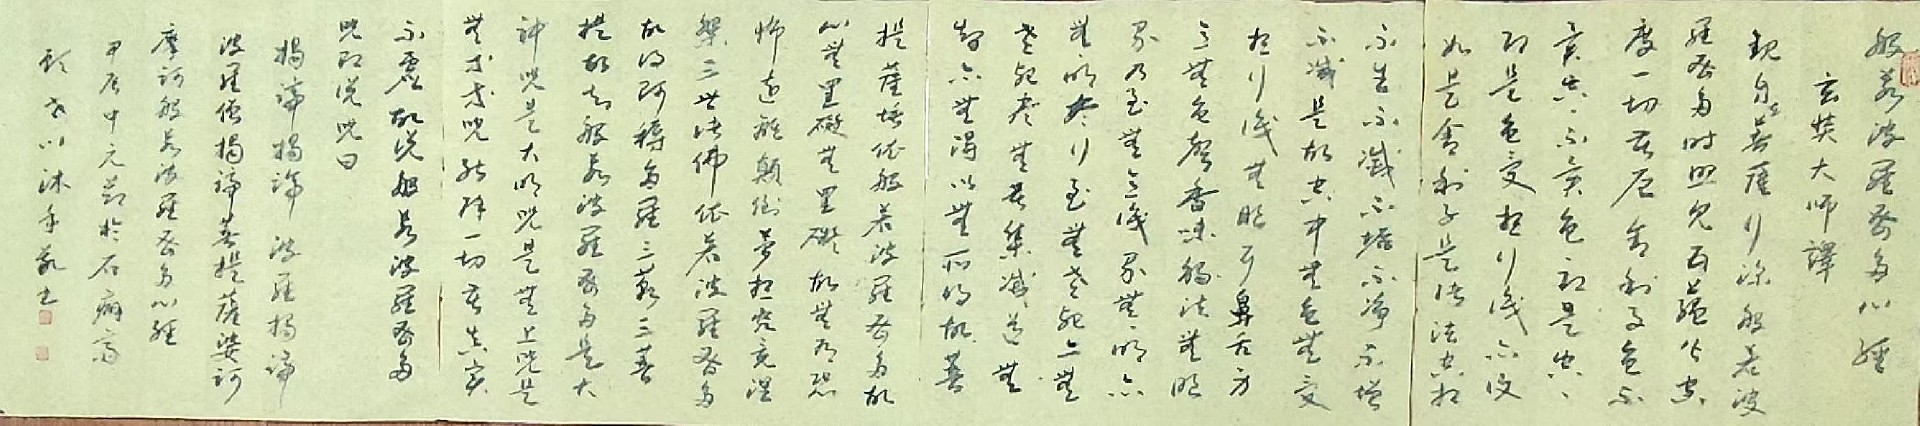 般若波羅蜜多心經
玄奘大師譯
觀自在菩薩行深般若波
羅蜜多時照見五蘊皆空
度一切苦厄舍利子色不
異空空不異色色即是空空
即是色受想行識亦復
如是舍利子是諸法空相
不生不滅不垢不淨不增
不減是故空中無色無受
想行識無眼耳鼻舌身
意無色聲香味觸法無眼
界乃至無意識界無無明亦
無無明盡乃至無老死亦無
老死盡無苦集滅道無
智亦無得以無所得故菩
提薩埵依般若波羅蜜多故
心無罣礙無罣礙故無有恐
怖遠離顛倒夢想究竟涅
槃三世諸佛依般若波羅蜜多
故得阿耨多羅三藐三菩
提故知般若波羅蜜多是大
神咒是大明咒是無上咒是
無等等咒能除一切苦真實
不虛故說般若波羅蜜多
咒即說咒曰
揭諦揭諦 波羅揭諦
波羅僧揭諦菩提薩婆訶
摩訶般若波羅蜜多心經
甲辰中元節於石廟齋
沐手敬書